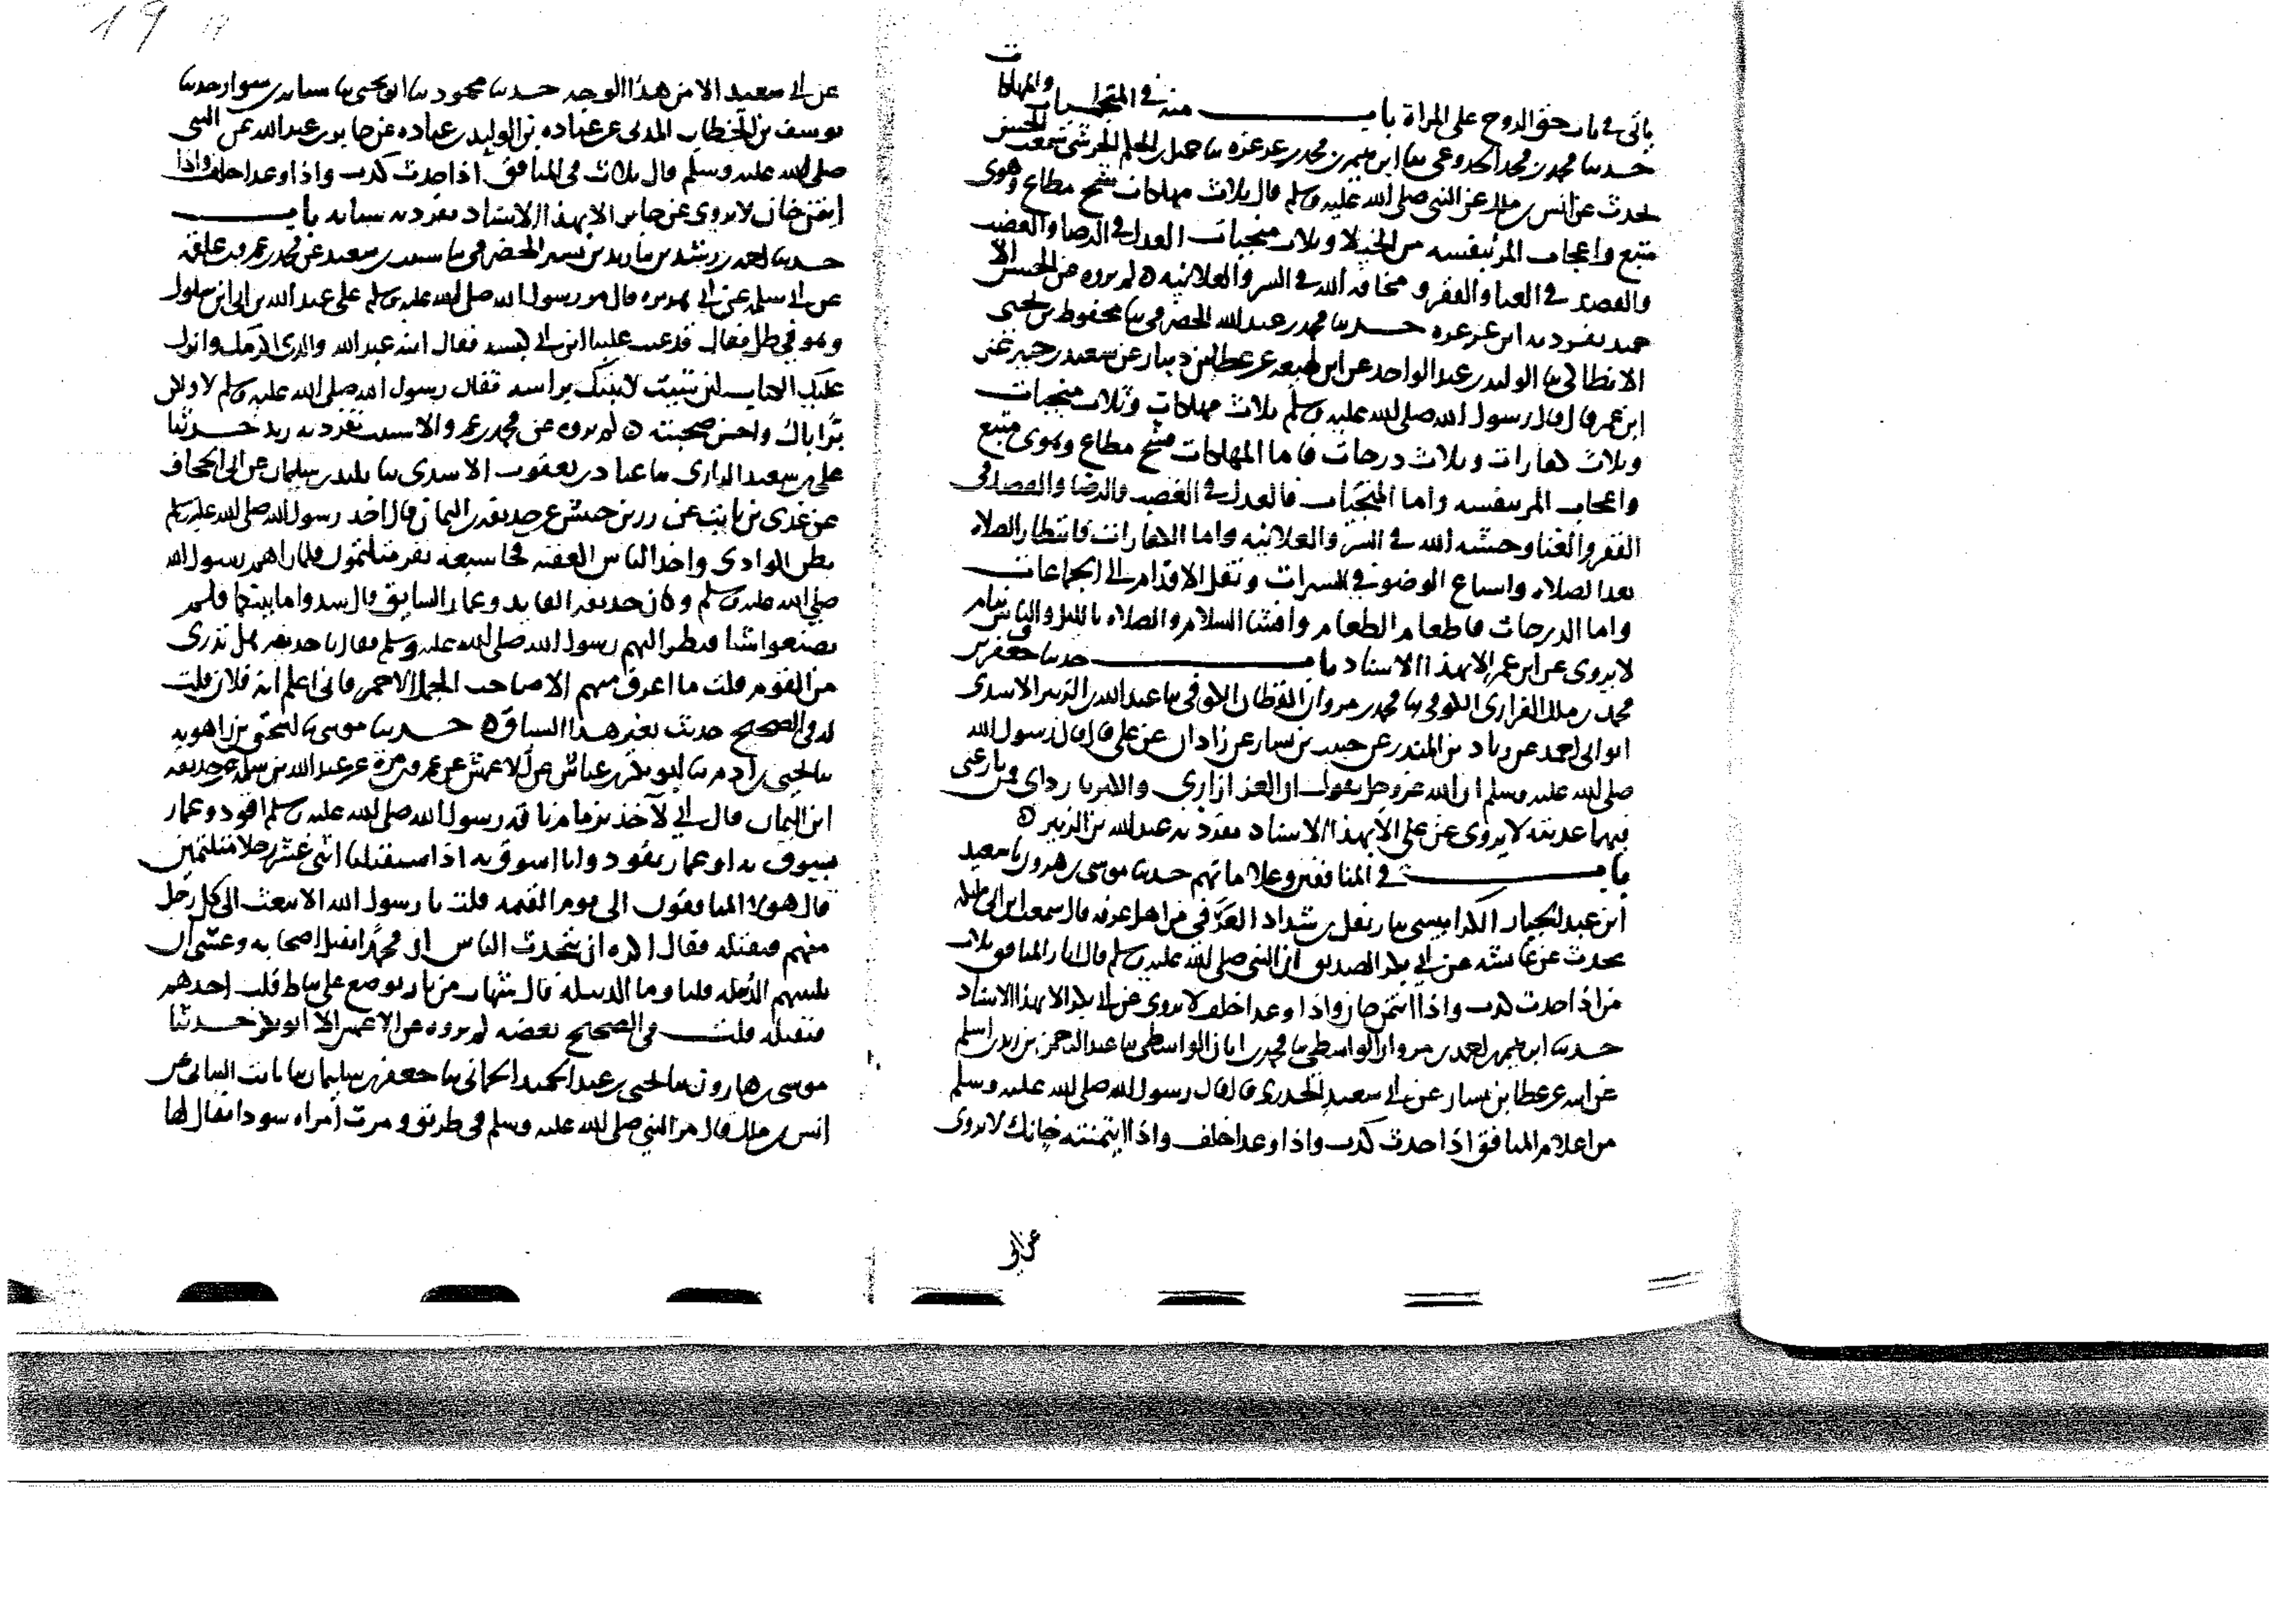 ياتى فى باب حق الزوج على المراة باب منه فى المنجيات والمهلكات
حدثنا محمد بن محمد الجذوعى ثنا ابرهيم بن محمد بن عرعره ثنا حميد بن الحكم الجرشى سمعت الحسن
يحدث عن انس بن ملك عن النبى صلى الله عليه وسلم قال ثلاث مهلكات شح مطاع وهوى
متبع واعجاب المرء بنفسه من الخيلا وثلاث منجيات العدل فى الرضا والغضب
والقصد فى الغنا والفقر ومخافة الله فى السر والعلانيه لم يروه عن الحسن الا
حميد تفرد به ابن عرعره حدثنا محمد بن عبد الله الحضرمى ثنا محفوظ بن يحيى
الانطاكى ثنا الوليد بن عبد الواحد عن ابن لهيعه عن عطا بن دينار عن سعيد بن جبير عن
ابن عمر قال قال رسول الله صلى الله عليه وسلم ثلاث مهلكات وثلاث منجيات
وثلاث كفارات وثلاث درجات فاما المهلكات فشح مطاع وهوى متبع
واعجاب المرء بنفسه واما المنجيات فالعدل فى الغضب والرضا والقصد فى
الفقر والغنا وخشية الله فى السر والعلانيه واما الكفارات فانتظار الصلاه
بعد الصلاه واسباغ الوضو فى السبرات ونقل الاقدام الى الجماعات
واما الدرجات فاطعام الطعام وافشا السلام والصلاه بالليل والناس نيام
لا يروى عن ابن عمر الا بهذا الاسناد باب حدثنا جعفر بن
محمد بن ملك الفزارى الكوفى ثنا محمد بن مروان القطان الكوفى ثنا عبد الله بن الزبير الاسدى
ابو ابى احمد عن زياد بن المنذر عن حبيب بن يسار عن زاذان عن على قال قال رسول الله
صلى الله عليه وسلم ان الله عز وجل يقول ان العز ازارى والكبريا ردائى فمن نازعنى
فيهما عذبته لا يروى عن على الا بهذا الاسناد تفرد به عبد الله بن الزبير
باب فى المنافقين وعلاماتهم حدثنا موسى بن هرون ثنا سعيد
ابن عبد الجبار الكرابيسى ثنا زنفل بن شداد العرفى من اهل عرفه قال سمعت ابن ابى مليكه
يحدث عن عائشه عن ابى بكر الصديق ان النبى صلى الله عليه وسلم قال اثار المنافق ثلاث
من اذا حدث كذب واذا ائتمن خان واذا وعد اخلف لا يروى عن ابى بكر الا بهذا الاسناد
حدثنا ابرهيم بن احمد بن مروان الواسطى ثنا محمد بن ابان الواسطى ثنا عبد الرحمن بن زيد بن اسلم
عن ابيه عن عطا بن يسار عن ابى سعيد الخدرى قال قال رسول الله صلى الله عليه وسلم
من اعلام المنافق اذا حدث كذب واذا وعد اخلف واذا ائتمنته خانك لا يروى
عن ابى
19
عن ابى سعيد الا من هذا الوجه حدثنا محمود ثنا ابو يحيى ثنا شبابه بن سوار حدثنا
يوسف بن الخطاب المدنى عن عباده بن الوليد بن عباده عن جابر بن عبد الله عن النبى
صلى الله عليه وسلم قال ثلاث فى المنافق اذا حدث كذب واذا وعد اخلف واذا
ائتمن خان لا يروى عن جابر الا بهذا الاسناد تفرد به شبابه باب
حدثنا احمد بن رشدين ثنا زيد بن بشر الحضرمى ثنا شبيب بن سعيد عن محمد بن عمرو بن علقمه
عن ابى سلمه عن ابى هريره قال مر رسول الله صلى الله عليه وسلم على عبد الله بن ابى ابن سلول
وهو فى ظل فقال قد غبر علينا ابن ابى كبشه فقال ابنه عبد الله والذى اكرمك وانزل
عليك الكتاب لئن شئت لاتينك براسه فقال رسول الله صلى الله عليه وسلم لا ولكن
بر اباك واحسن صحبته لم يروه عن محمد بن عمرو الا شبيب تفرد به زيد حدثنا
على بن سعيد الرازى ثنا عباد بن يعقوب الاسدى ثنا تليد بن سليمان عن ابى الجحاف
عن عدى بن ثابت عن زر بن حبيش عن حذيفه بن اليمان قال اخذ رسول الله صلى الله عليه وسلم
بطن الوادى واخذ الناس العقبه فجا سبعه نفر متلثمون فلما راهم رسول الله
صلى الله عليه وسلم وكان حذيفه القايد وعمار السايق قال شدوا ما بينكما فلم
يصنعوا شيا فنظر اليهم رسول الله صلى الله عليه وسلم فقال يا حذيفه هل تدرى
من القوم قلت ما اعرف منهم الا صاحب الجمل الاحمر فانى اعلم انه فلان قلت
له فى الصحيح حديث بغير هذا السياق حدثنا موسى ثنا اسحق بن راهويه
ثنا يحيى بن ادم ثنا ابو بكر بن عياش عن الاعمش عن عمرو بن مرة عن عبد الله بن سلمه عن حذيفه
ابن اليمان قال انى لآخذ بزمام ناقه رسول الله صلى الله عليه وسلم اقود وعمار
يسوق به او عمار يقود وانا اسوق به اذ استقبلنا اثنى عشر رجلا متلثمين
قال هولا المنافقون الى يوم القيمه قلت يا رسول الله الا تبعث الى كل رجل
منهم فتقتله فقال اكره ان يتحدث الناس ان محمدا يقتل اصحابه وعسى ان
تكفيهم الدبيله قلنا وما الدبيله قال شهاب من نار يوضع على نياط قلب احدهم
فتقتله قلت فى الصحيح بعضه لم يروه عن الاعمش الا ابو بكر حدثنا
موسى بن هارون ثنا يحيى بن عبد الحميد الحمانى ثنا جعفر بن سليمان ثنا ثابت البنانى عن
انس بن ملك قال مر النبى صلى الله عليه وسلم فى طريق ومرت امراه سودا فقال لها